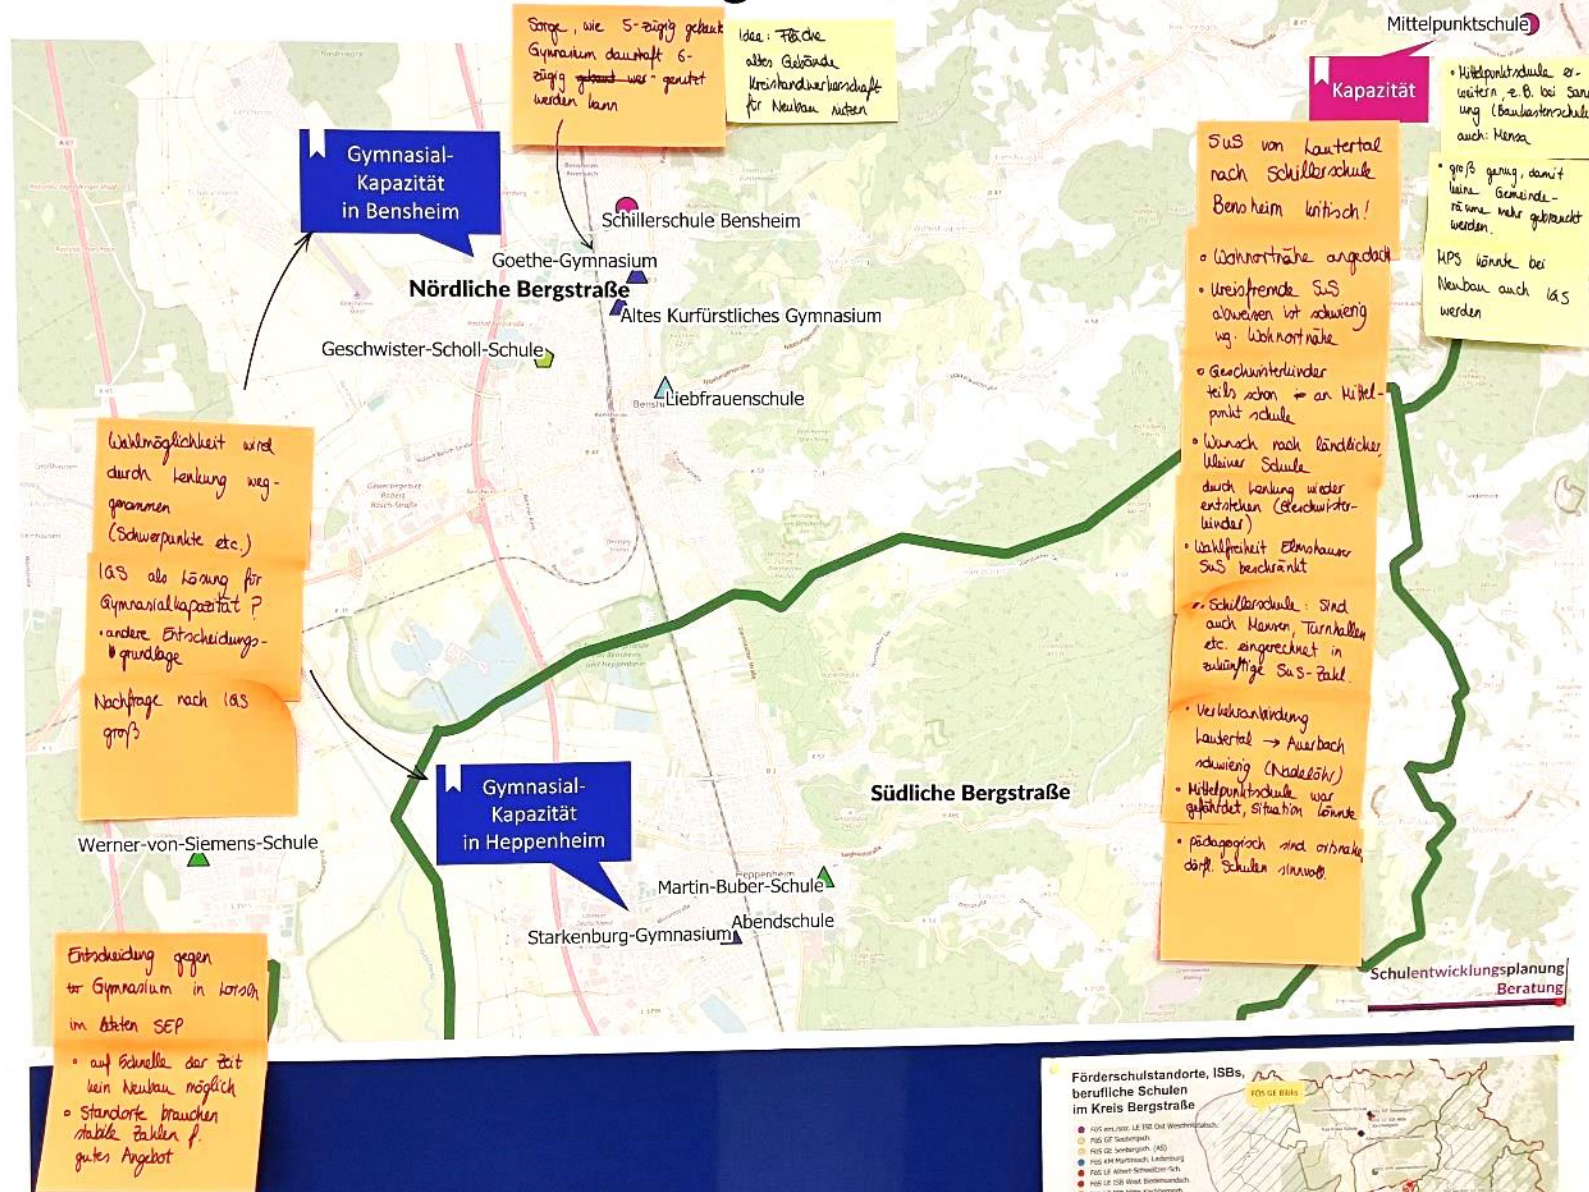 Sorge, wie 5-zügig gebaut
Gymnasium dauerhaft 6-
zügig genutzt
werden kann
Idee: Fläche
altes Gebäude
Kreishandwerkerschaft
für Neubau nutzen
Mittelpunktschule
Kapazität
• Mittelpunktschule er-
weitern, z.B. bei Sani
ung (Baukastenschule
auch: Mensa
• groß genug, damit
keine Gemeinde-
räume mehr gebraucht
werden.
MPS könnte bei
Neubau auch IGS
werden
Gymnasial-
Kapazität
in Bensheim
Schillerschule Bensheim
Goethe-Gymnasium
Nördliche Bergstraße
Altes Kurfürstliches Gymnasium
Geschwister-Scholl-Schule
Liebfrauenschule
SuS von Lautertal
nach Schillerschule
Bensheim kritisch!
• Wohnortnähe angedacht
• kreisfremde SuS
abweisen ist schwierig
wg. Wohnortnähe
• Geschwisterkinder
teils schon an Mittel-
punkt schule
• Wunsch nach ländlicher,
kleiner Schule
durch Lenkung wieder
entstehen (Geschwister-
kinder)
• Wahlfreiheit Elmshäuser
SuS beschränkt
• Schillerschule: Sind
auch Mensen, Turnhallen
etc. eingerechnet in
zukünftige SuS-Zahl.
• Verkehranbindung
Lautertal → Auerbach
schwierig (Nadelöhr)
• Mittelpunktschule war
gefährdet, Situation könnte
• pädagogisch sind ortsnahe,
dörfl. Schulen sinnvoll.
Wahlmöglichkeit wird
durch Lenkung weg-
genommen
(Schwerpunkte etc.)
IGS als Lösung für
Gymnasialkapazität?
• andere Entscheidungs-
grundlage
Nachfrage nach IGS
groß
Gymnasial-
Kapazität
in Heppenheim
Südliche Bergstraße
Werner-von-Siemens-Schule
Heppenheim
Martin-Buber-Schule
Abendschule
Starkenburg-Gymnasium
Entscheidung gegen
Gymnasium in Lorsch
im letzten SEP
• auf Schnelle der Zeit
kein Neubau möglich
• Standorte brauchen
stabile Zahlen f.
gutes Angebot
Schulentwicklungsplanung
Beratung
Förderschulstandorte, ISBs,
berufliche Schulen
im Kreis Bergstraße
FÖS GE Biblis